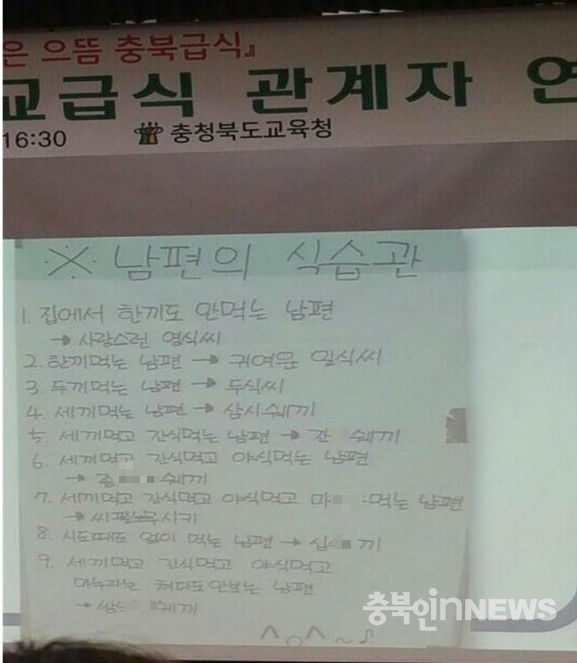 은 으뜸 충북급식』
교급식 관계자 연
16:30 충청북도교육청
※ 남편의 식습관
1. 집에서 한끼도 안먹는 남편
→ 사랑스런 영식씨
2. 한끼먹는 남편 → 귀여운 일식씨
3. 두끼먹는 남편 → 두식씨
4. 세끼먹는 남편 → 삼시쉐끼
5. 세끼먹고 간식먹는 남편 → 간 쉐끼
6. 세끼먹고 간식먹고 야식먹는 남편
→ 종 쉐끼
7. 세끼먹고 간식먹고 야식먹고 마 먹는 남편
→ 시키
8. 시도때도 없이 먹는 남편 → 십 끼
9. 세끼먹고 간식먹고 야식먹고
마누라는 쳐다도안보는 남편
→ 쌍 쉐끼
^o^~♪
충북인inNEWS